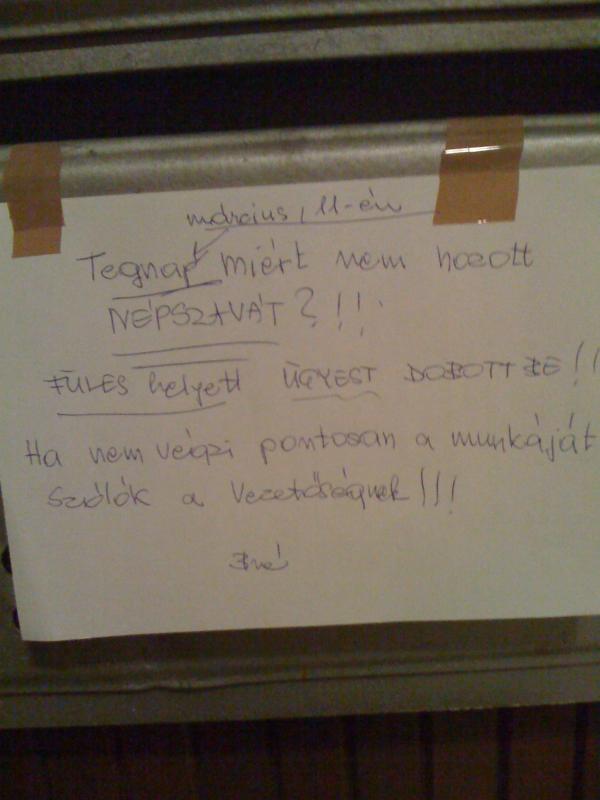 március, 11-én
Tegnap miért nem hozott
NÉPSZAVÁT?!!
FÜLES helyett ÜGYEST DOBOTT BE!!
Ha nem végzi pontosan a munkáját
szólók a Vezetőségnek!!!